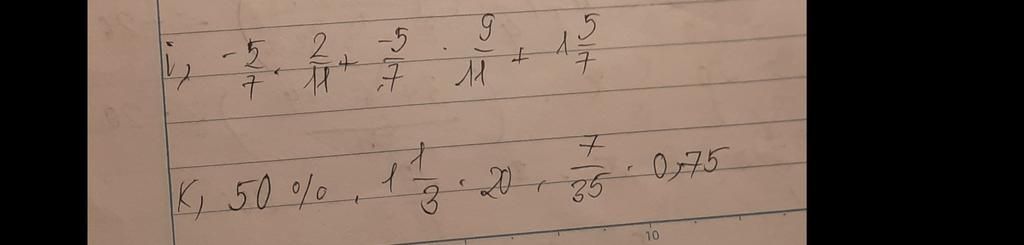 i, -5/7 . 2/11 + -5/7 . 9/11 + 1 5/7
K, 50 % . 1 1/3 . 20 . 7/35 . 0,75
10